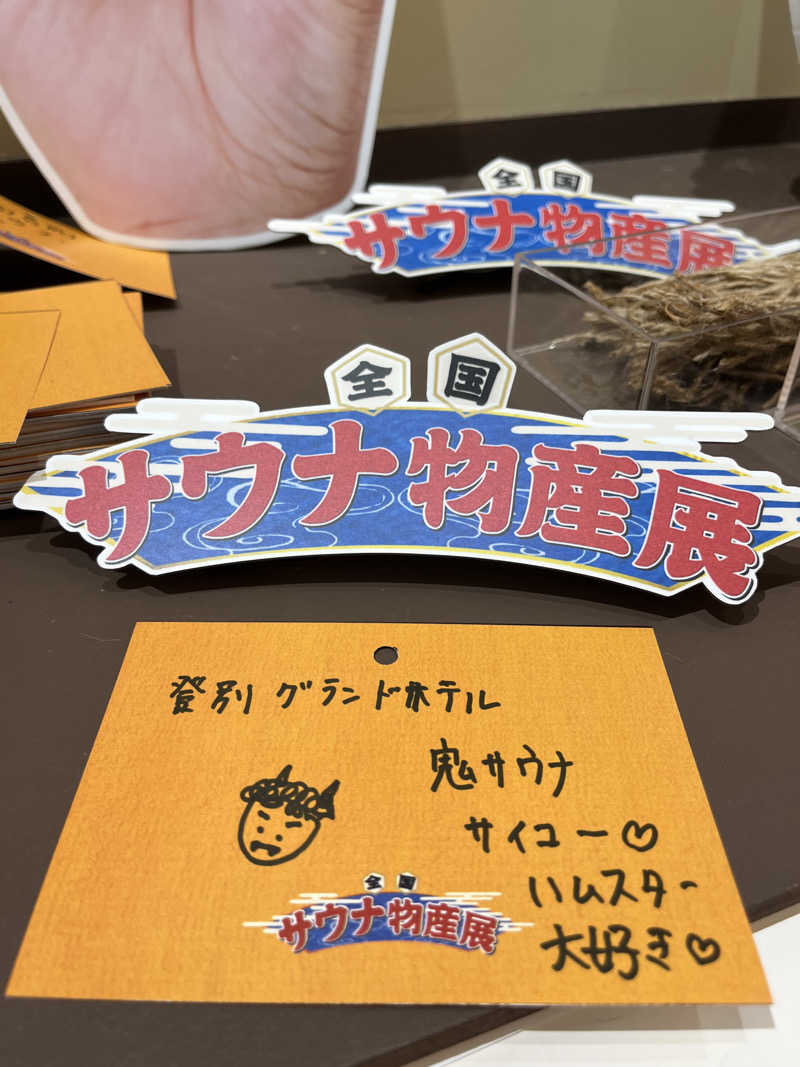 全国
サウナ物産展
全国
サウナ物産展
登別 グランドホテル
鬼サウナ
サイコー♡
ハムスター
大好き♡
全国
サウナ物産展